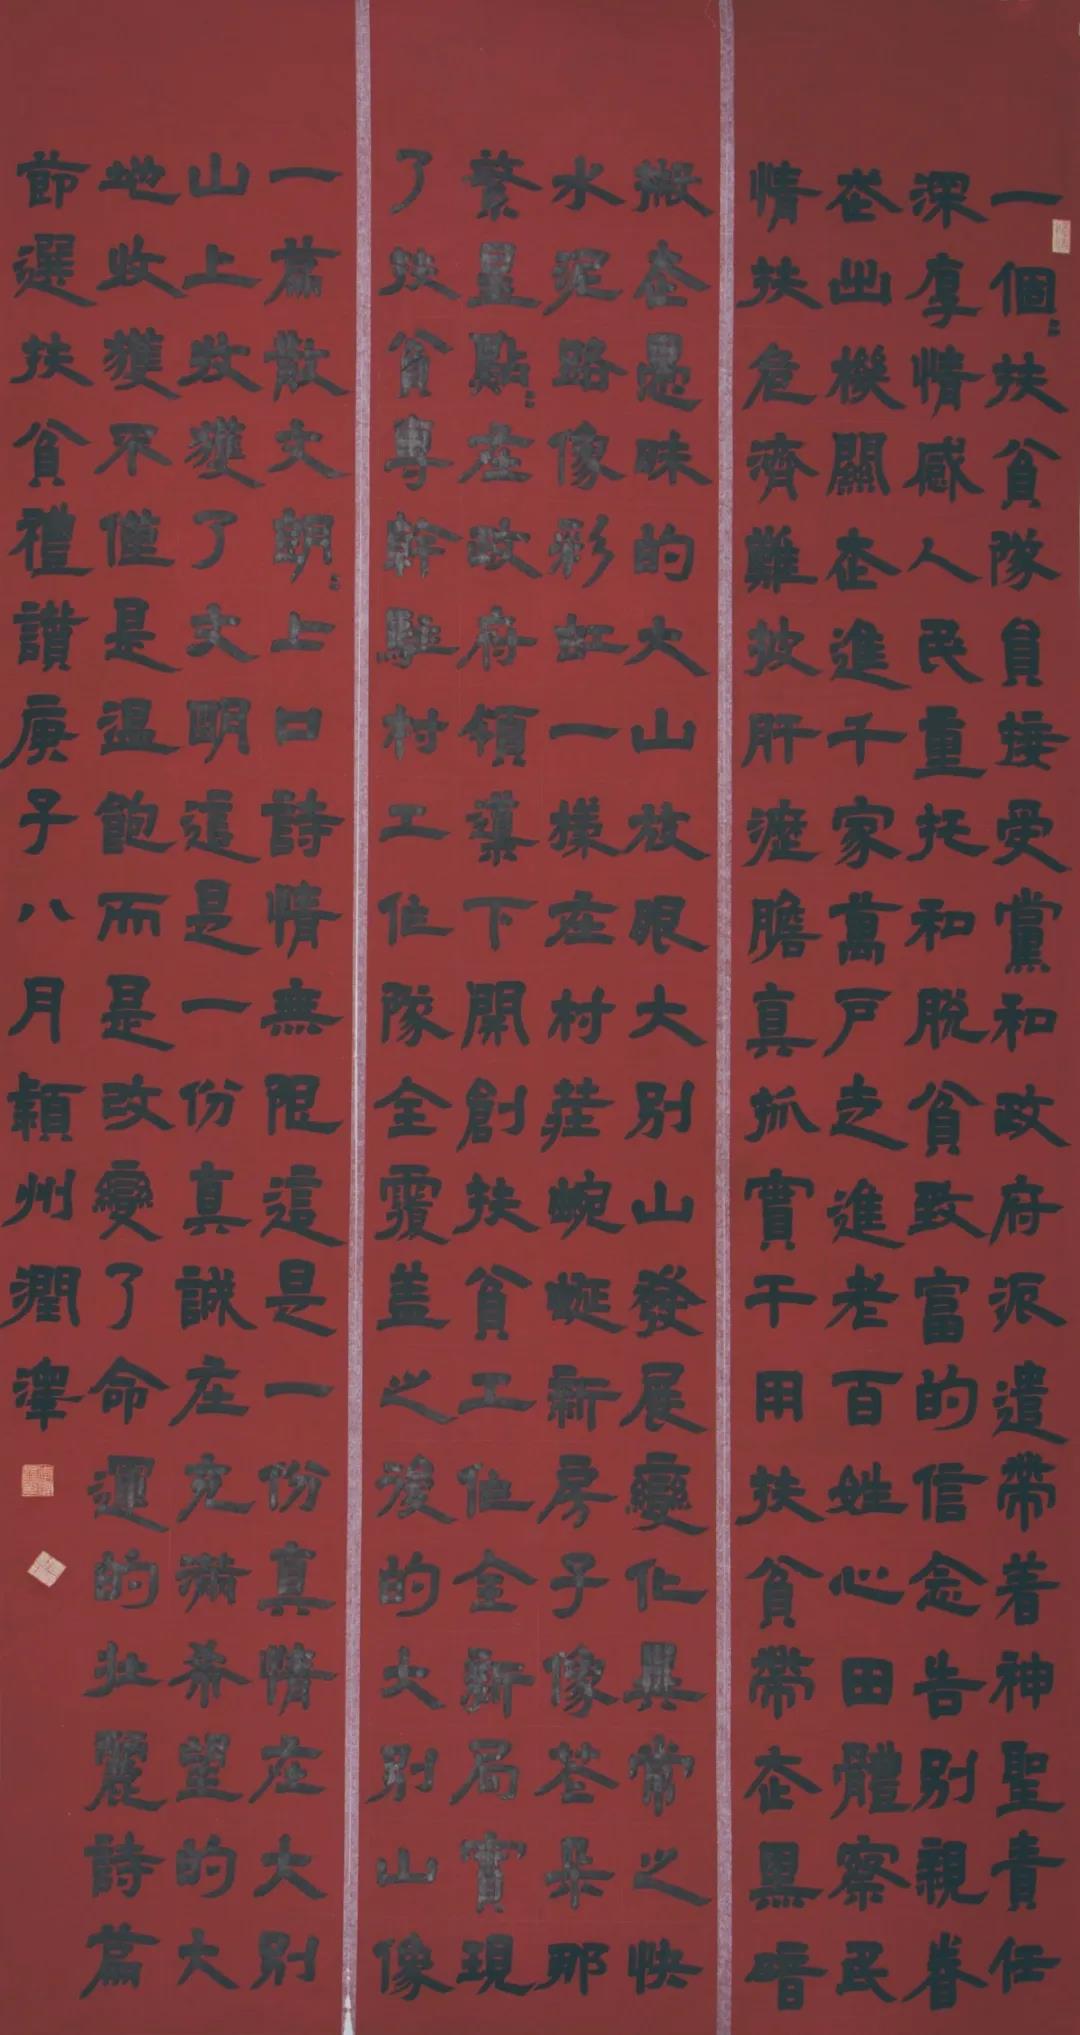 一個〻扶貧隊員接受黨和政府派遣帶着神聖責任
深厚情感人民重托和脫貧致富的信念告別親眷
走出機關走進千家萬戶走進老百姓心田體察民
情扶危濟難披肝瀝膽真抓實干用扶貧帶走黑暗
搬走愚昧的大山放眼大別山發展變化異常之快
水泥路像彩虹一樣在村莊蜿蜒新房子像花朵那
繁星點〻在政府領導下開創扶貧工作全新局實現
了扶貧專幹駐村工作隊全覆蓋之後的大別山像
一篇散文朗〻上口詩情無限這是一份真情在大別
山上收獲了文明這是一份真誠在充滿希望的大
地收獲不僅是温飽而是改變了命運的壯麗詩篇
節選扶貧禮讚庚子八月潁州潤澤